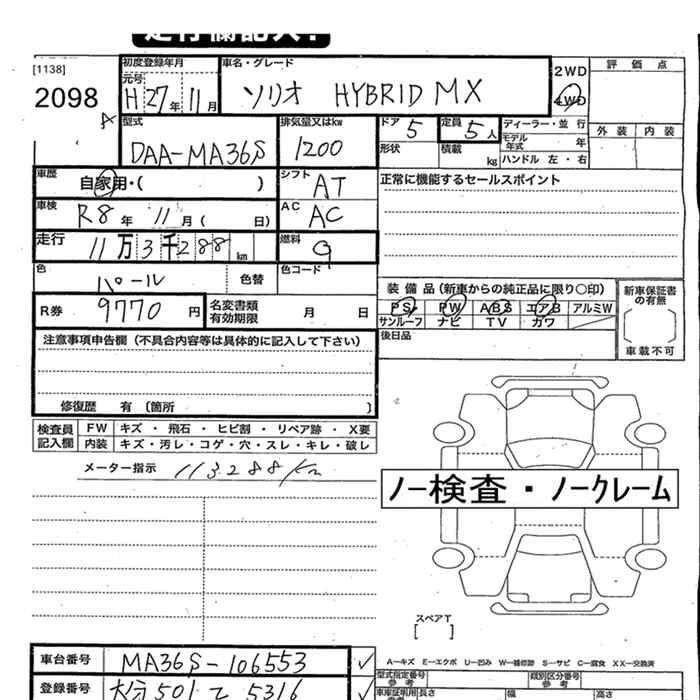 走行欄記入!
[1138]
2098
初度登録年月
元号
H 27年 11月
車名・グレード
ソリオ HYBRID MX
2WD
4WD
評価点
外装 内装
型式
DAA-MA36S
排気量又はkw
1200
ドア 5
定員 5人
形状
積載 kg
ディーラー・並行
モデル年式 年
ハンドル 左・右
車歴
自家用・( )
シフト AT
車検
R8年 11月( 日)
AC AC
走行
11万3千288km
燃料
色
パール
色替
色コード
R券 9770円
名変書類有効期限 月 日
正常に機能するセールスポイント
装備品(新車からの純正品に限り○印)
PS PW ABS エアB アルミW
サンルーフ ナビ TV カワ
後日品
新車保証書の有無
車載不可
注意事項申告欄(不具合内容等は具体的に記入して下さい)
修復歴 有 〔箇所 〕
検査員記入欄
FW キズ・飛石・ヒビ割・リペア跡・X要
内装 キズ・汚レ・コゲ・穴・スレ・キレ・破レ
メーター指示 113288km
ノー検査・ノークレーム
スペアT
[ ]
A─キズ E─エクボ U─凹み W─補修跡 S─サビ C─腐食 XX─交換済
車台番号 MA36S-106553
登録番号 大分501 て 5316
型式指定番号
参考
類別区分番号
参考
長さ 幅 高さ